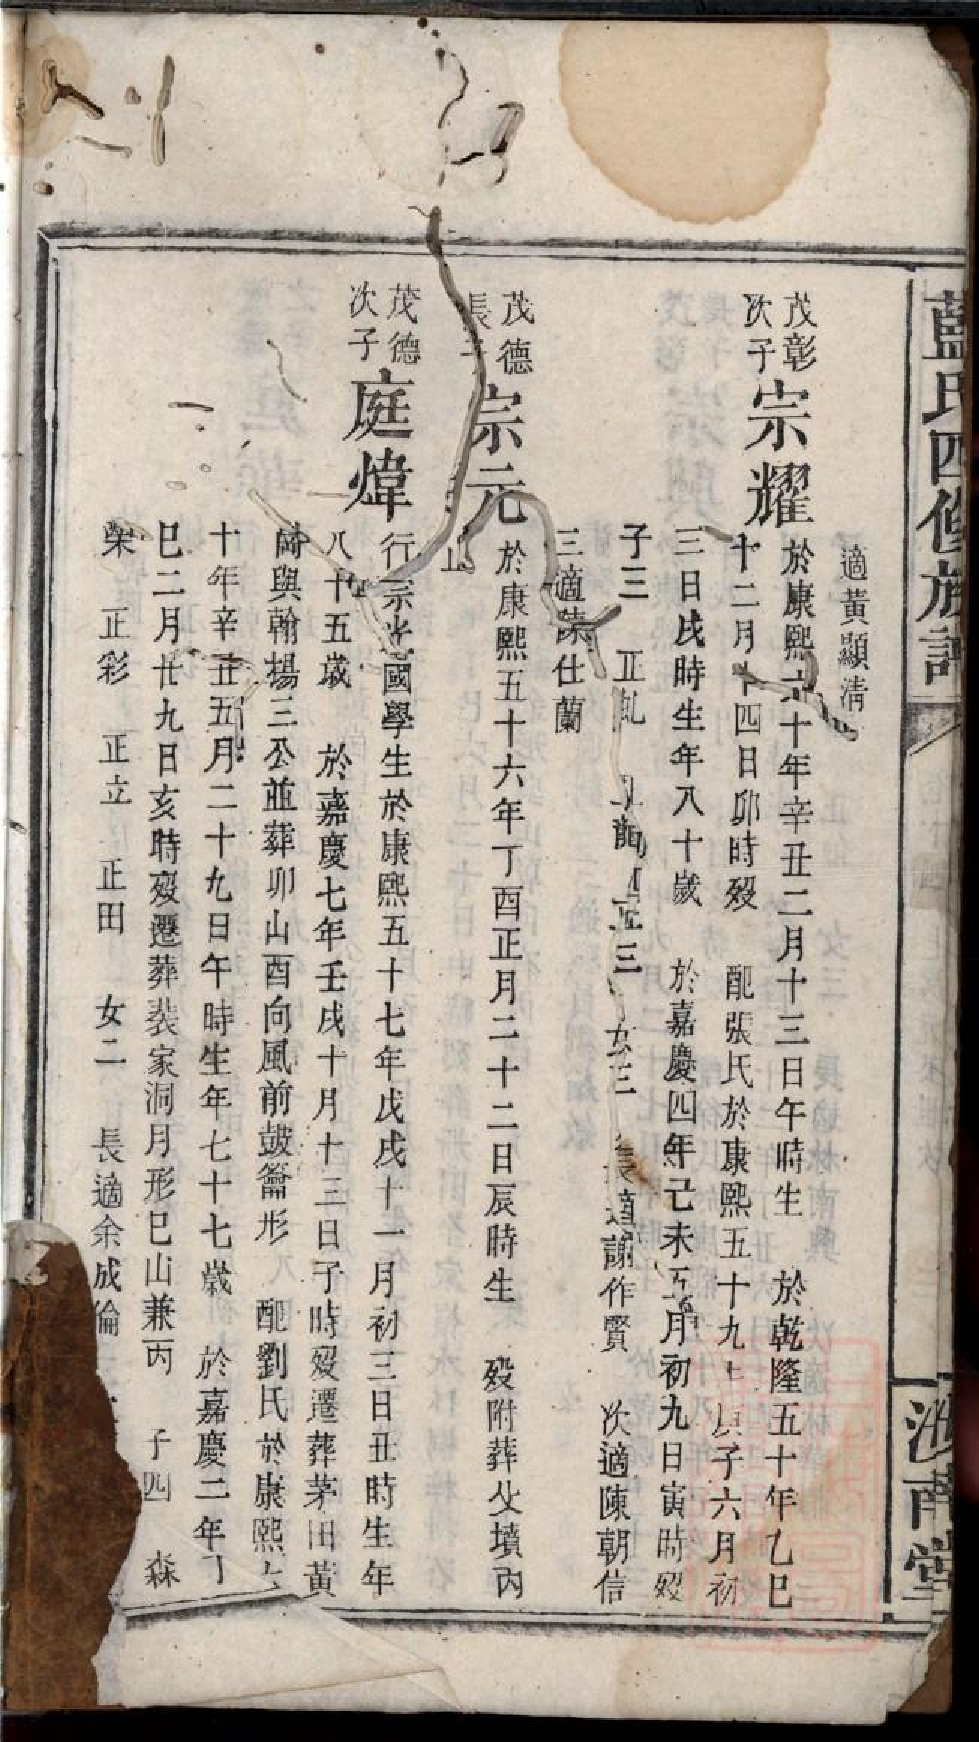 藍氏四修族譜
汝南堂
適黃顯清
茂彰
次子
宗耀
於康熙六十年辛丑二月十三日午時生 於乾隆五十年乙巳
十二月十四日卯時歿 配張氏於康熙五十九 庚子六月初
三日戌時生年八十歲 於嘉慶四年己未五月初九日寅時歿
子三 正 女三 長適謝作賢 次適陳朝信
三適陳仕蘭
茂德
長子
宗元
於康熙五十六年丁酉正月二十二日辰時生 歿附葬父墳內
止
茂德
次子
庭煒
行宗光國學生於康熙五十七年戊戌十一月初三日丑時生年
八十五歲 於嘉慶七年壬戌十月十三日子時歿遷葬茅田黃
崎與翰楊三公並葬卯山酉向風前皷籥形 配劉氏於康熙六
十年辛丑五月二十九日午時生年七十七歲 於嘉慶二年丁
巳二月廿九日亥時歿遷葬裝家洞月形巳山兼丙 子四 森
榮 正彩 正立 正田 女二 長適余成倫